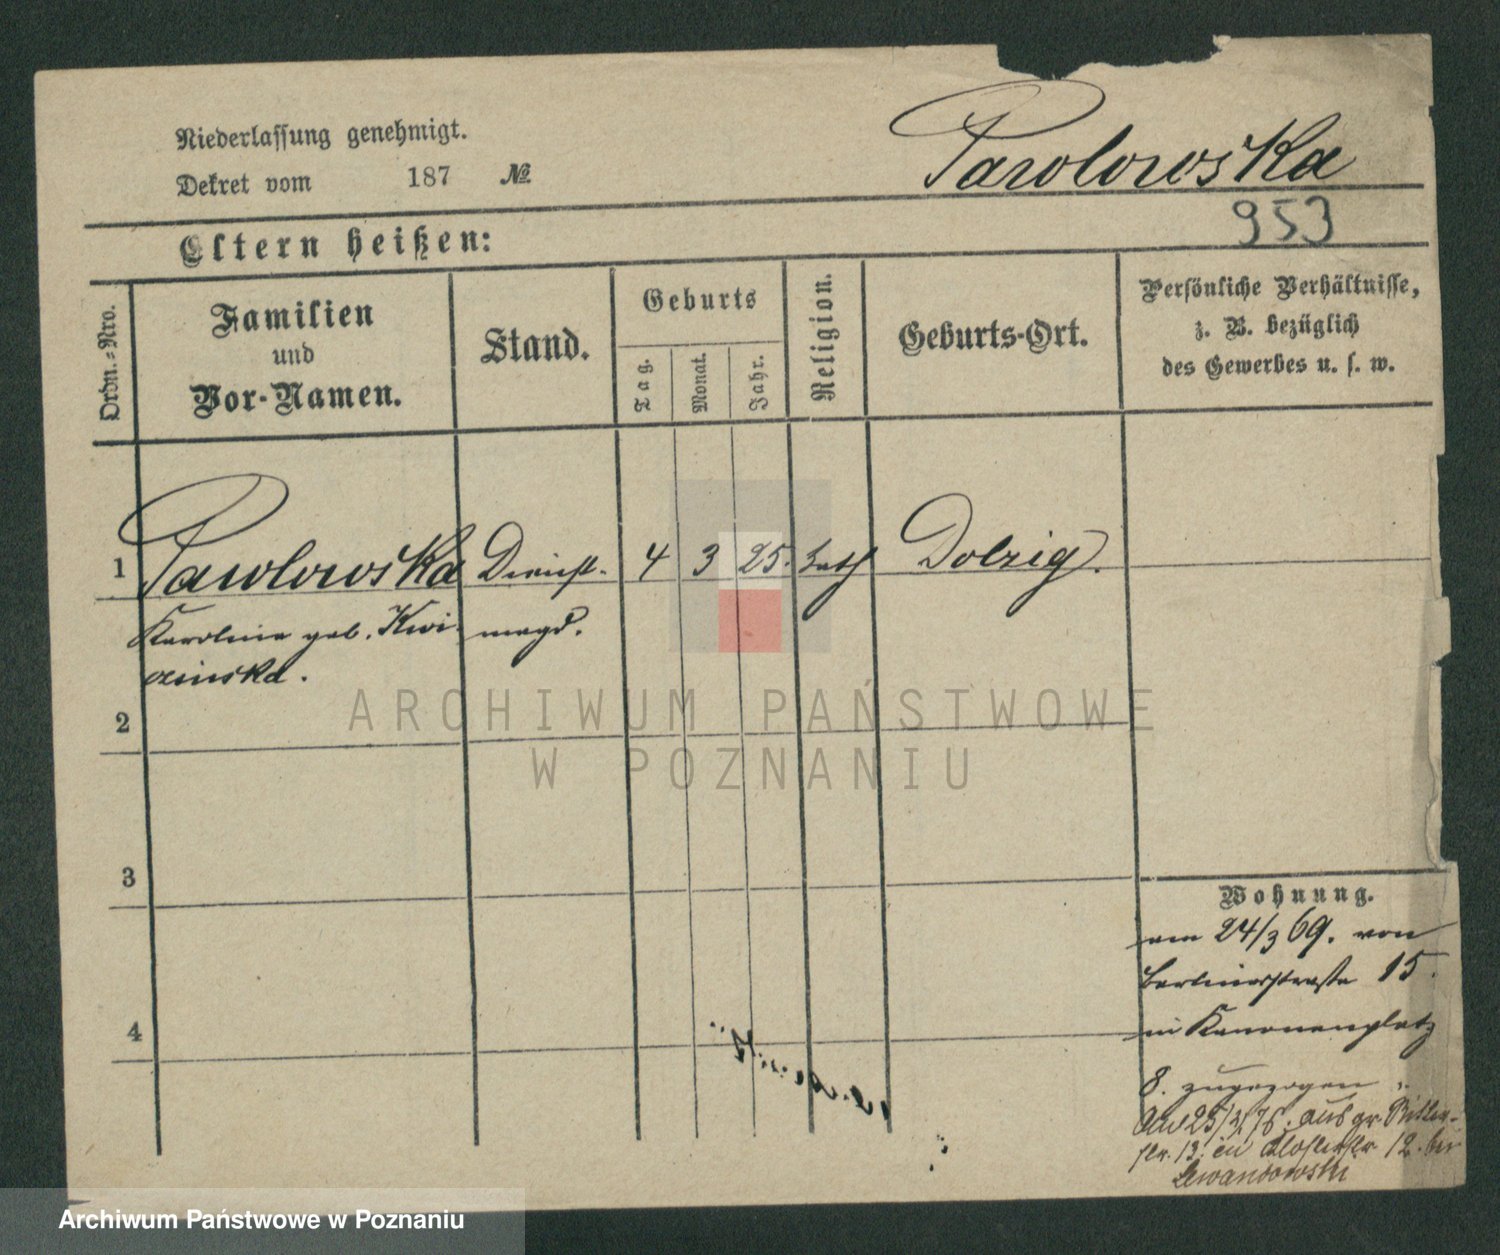 Niederlassung genehmigt.
Dekret vom 187 №
Pawlowska
953
Eltern heißen:
Ordn.=Nro.
Familien
und
Vor-Namen.
Stand.
Geburts
Tag.
Monat.
Jahr.
Religion.
Geburts-Ort.
Persönliche Verhältnisse,
z. B. bezüglich
des Gewerbes u. s. w.
1 Pawlowska Dienst- 4 3 25. kath Dolzig.
Karolina geb. Kwi- magd.
czinska.
2
3
4
Wohnung.
am 24/3 69. von
Berlinerstraße 15.
in Kanonenplatz
8. zugezogen
Am 25/ 76. aus gr. Ritter-
str. 13. in Klosterstr. 12. bei
Lewandowski
ARCHIWUM PAŃSTWOWE
W POZNANIU
Archiwum Państwowe w Poznaniu